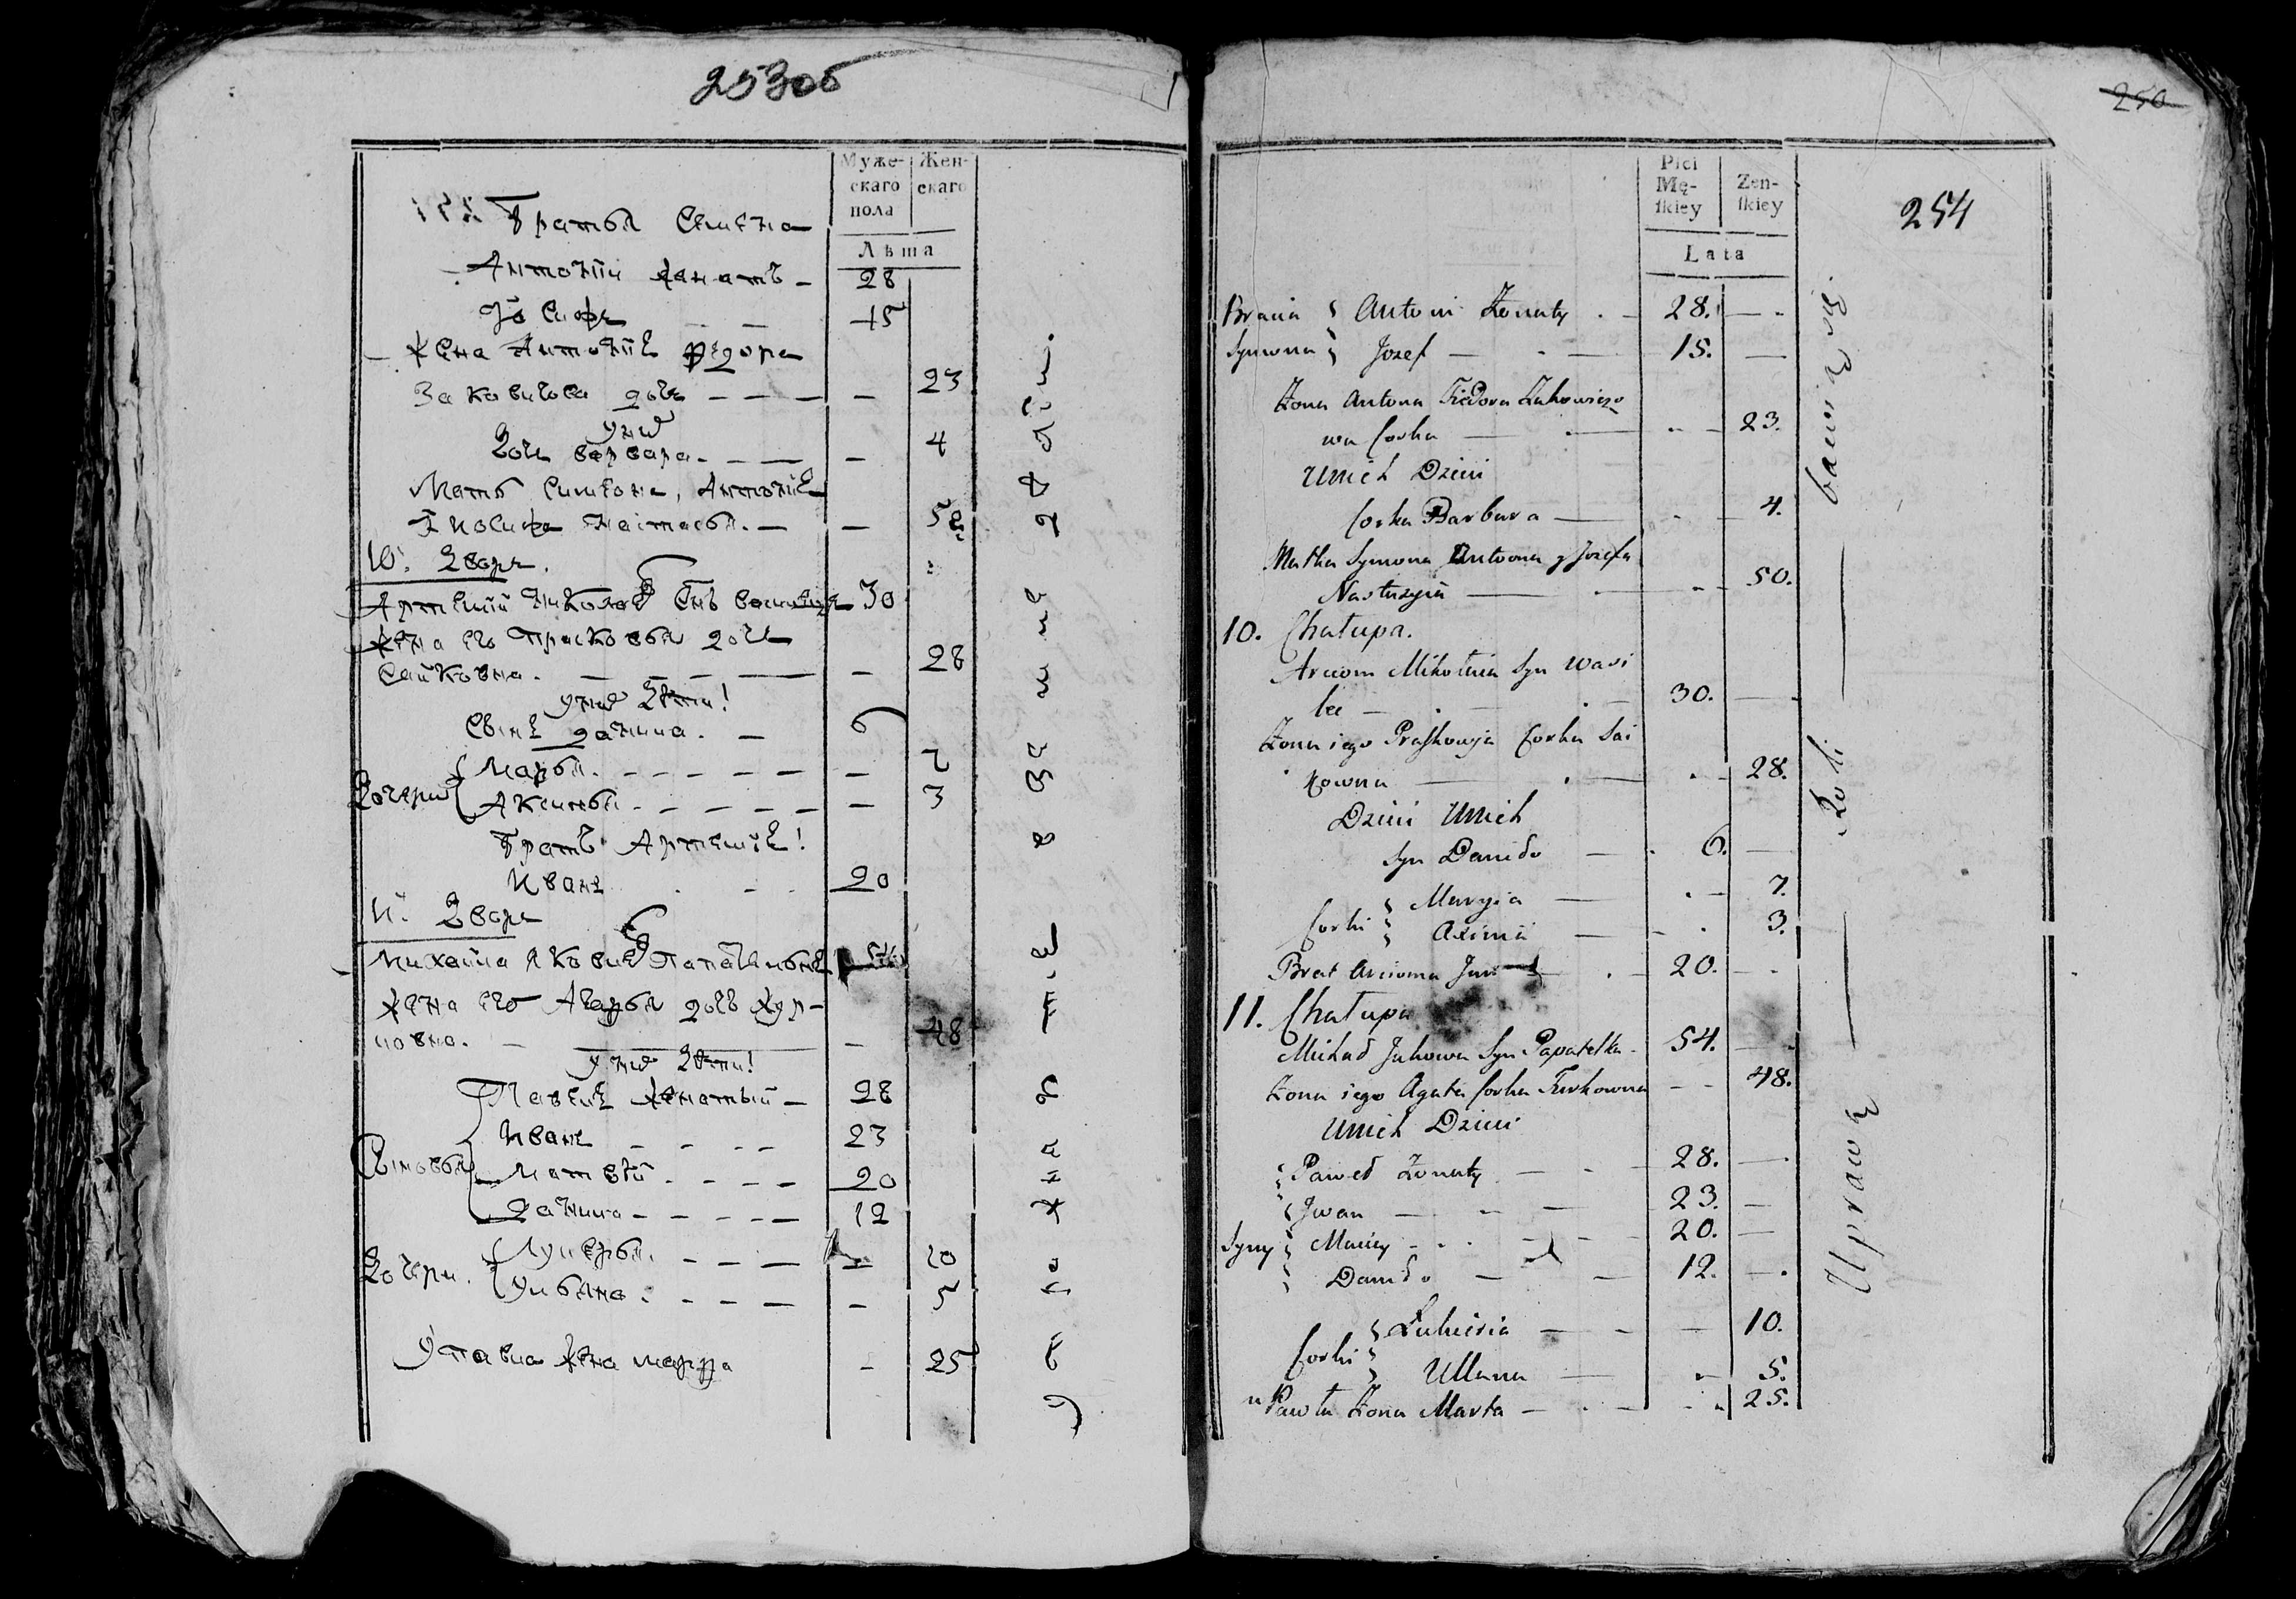 253об
Муже-
скаго
пола
Жен-
скаго
Лѣта
Братья Симона
Антоній жанатъ - 28
Іосифъ - - 15
жена Антонія Ѳедора
Заковичова дочь - - - - - 23
у них
дочь варвара - - - - 4
Мать Симиона, Антонія
и Иосифа Настасья. - - 50
10. Дворъ.
Артемій Николаев Снъ 30
жена его Прасковья дочь
Сайковна. - - - - - 28
у них дѣти!
Сынъ данила. - 6
дочери
Марья. - - - - - - 7
Аксинья - - - - - - 3
Братъ Артемія!
Иванъ - - 20
11. Дворъ
Михайла Яковлев
жена его Агафья дочь
- - 48
у них дѣти!
Сыновья
Павелъ жанатый - 28
Иванъ - - - - 23
Матвѣй - - - - 20
данила - - - - - 12
дочери.
Лукерья. - - - - - 10
Ульяна. - - - - - 5
у Павла жена марфа - 25
254
250
Płci
Mę-
ſkiey
Zen-
ſkiey
Lata
Bracia Antoni Żonaty . - 28. - -
Symona Jozef - - - 15. -
Żona Antona Fiedora Zakowiczo
wa Corka - - - - 23.
U nich Dzieci
Corka Barbara - - - 4.
Matka Symona Antoona y Jozefa
Nastazyia - - - - 50.
10. Chałupa.
Arciom Mikołaia Syn Wasi
lec - . - . - 30. -
Żona iego Praſkowja Corka Sai
kowna - . - . - 28.
Dzieci U nich
Syn Daniło - . 6. -
Corki Maryia - . - 7.
Axinia - - . 3.
Brat Arcioma Jwan - . - 20. - .
11. Chałupa
Michał Jakowa Syn Papatelka - 54. -
Żona iego Agata Corka Turkowna - - 48.
U nich Dzieci
Paweł Żonaty - - - 28. -
Jwan - - - 23. -
Syny Maciey - . . - - 20. -
Daniło - - 12. - .
Corki Łukieria - - - 10.
Ullana - - 5.
u Pawła Żona Marta - . - - 25.
Uprawą — Roli — bawią się.